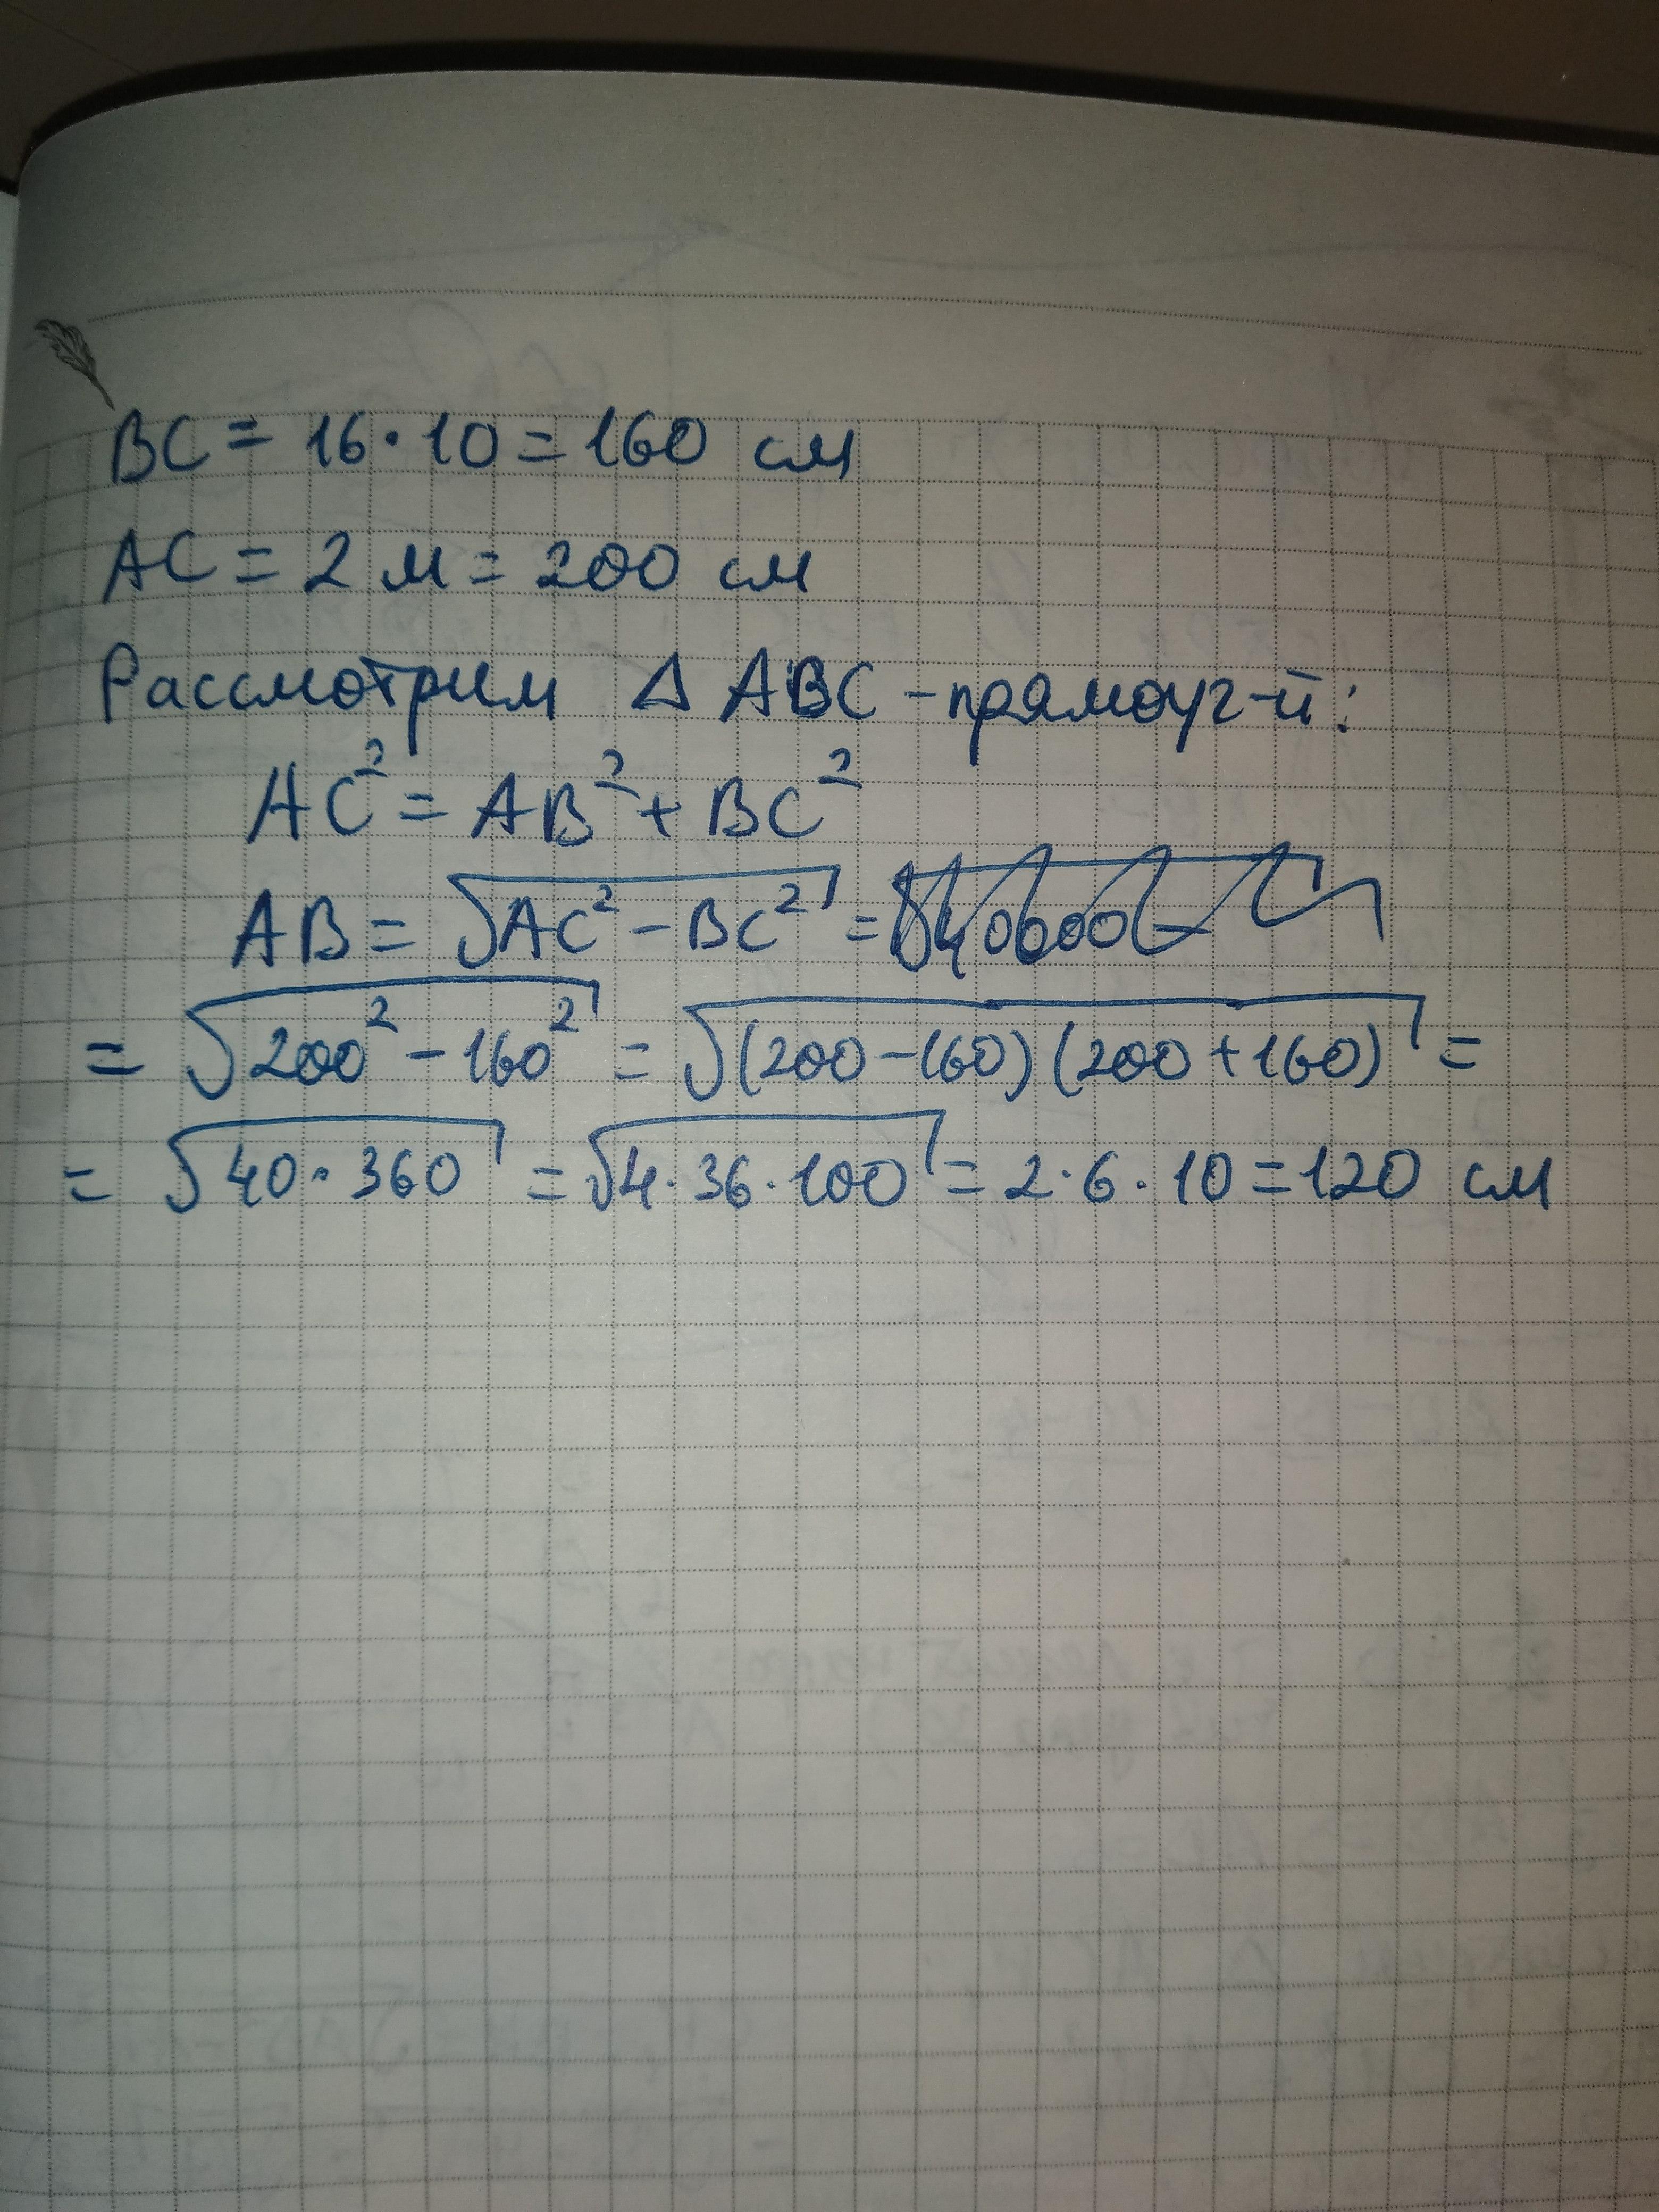 BC = 16·10 = 160 см
AC = 2 м = 200 см
Рассмотрим Δ ABC - прямоуг-й:
AC² = AB² + BC²
AB = √(AC² - BC²) =
= √(200² - 160²) = √((200-160)(200+160)) =
= √(40·360) = √(4·36·100) = 2·6·10 = 120 см